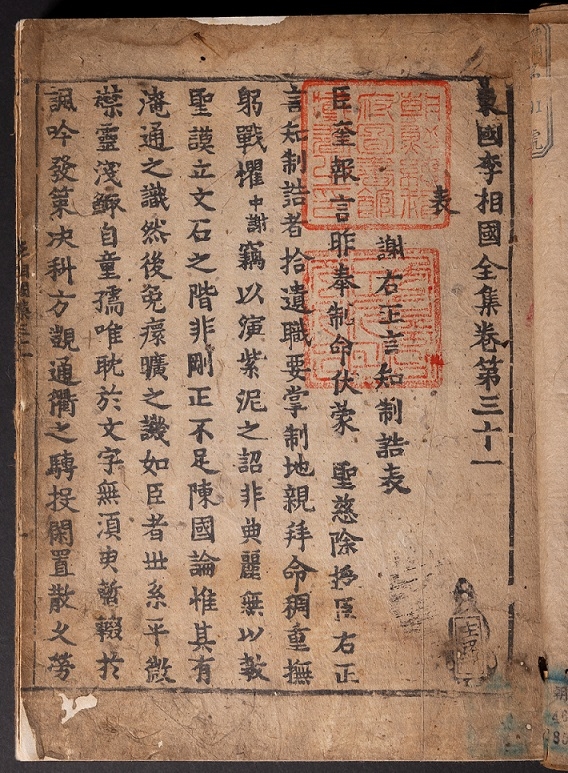 東國李相國全集卷第三十一
表
謝右正言知制誥表
臣奎報言昨奉制命伏蒙 聖慈除授臣右正
言知制誥者拾遺職要掌制地親拜命稠重撫
躬戰懼中謝竊以演紫泥之詔非典麗無以敷
聖謨立文石之階非剛正不足陳國論惟其有
淹通之識然後免瘝曠之譏如臣者世系平微
襟靈淺鯫自童孺唯耽於文字無湏臾暫輟於
諷吟發策决科方覬通衢之騁投閑置散久勞